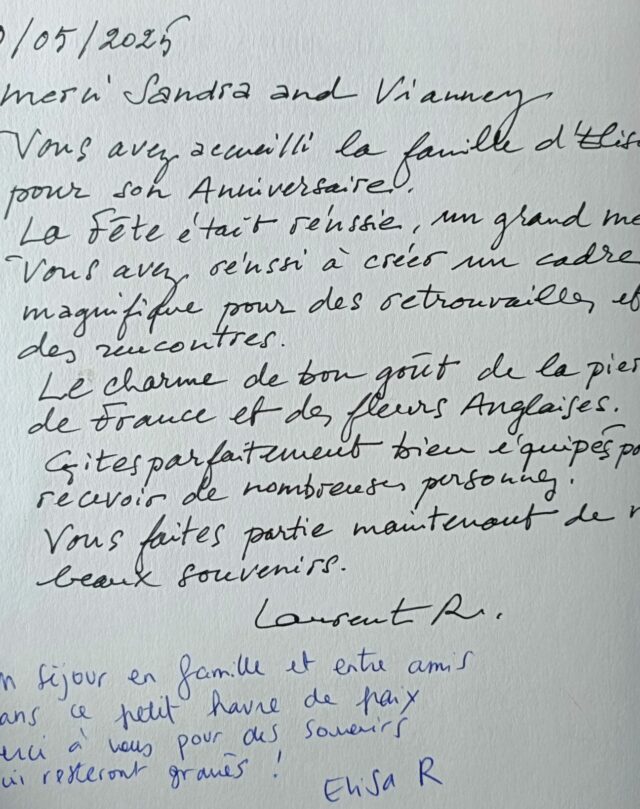 /05/2025
merci Sandra and Vianney
Vous avez accueilli la famille d'Elisa
pour son Anniversaire.
La Fête était réussie, un grand me
Vous avez réussi à créer un cadre
magnifique pour des retrouvailles et
des rencontres.
Le charme de bon goût de la pier
de France et des fleurs Anglaises.
Gites parfaitement bien équipés po
recevoir de nombreuses personnes.
Vous faites partie maintenant de
beaux souvenirs.
Laurent R.
n séjour en famille et entre amis
ans ce petit havre de paix
erci à vous pour des souvenirs
ui resteront gravés !
Elisa R